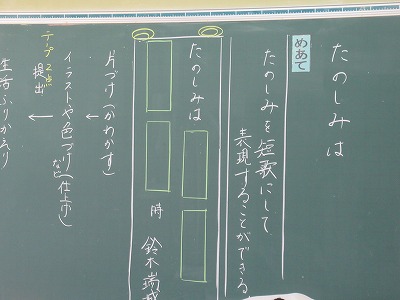 たのしみは
めあて
たのしみを短歌にして
表現することができる
たのしみは
時
鈴木瑞
片づけ(かわかす)
イラストや色づけなど(仕上げ)
提出
テープ2点
生活ふりかえり